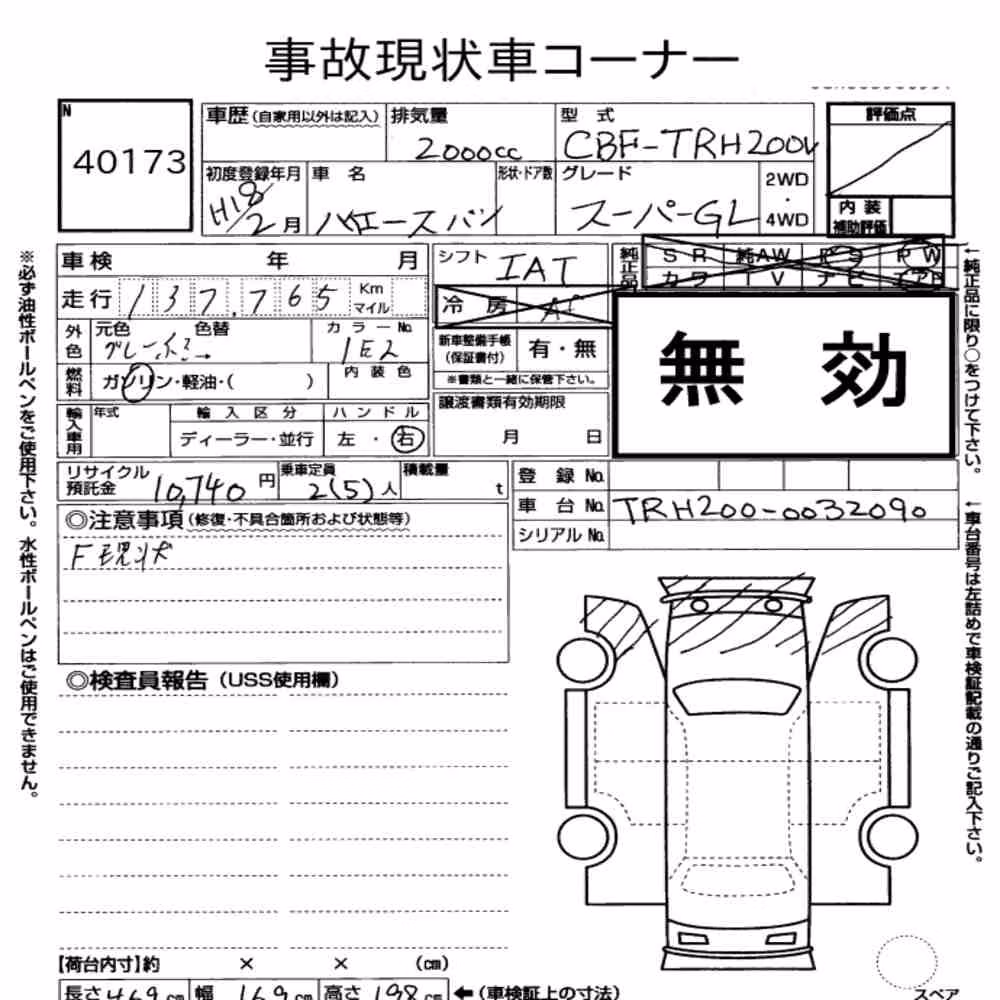 事故現状車コーナー
N
40173
車歴 (自家用以外は記入) 排気量 型式 評価点
2000cc CBF-TRH200V
初度登録年月 車名 形状・ドア数 グレード 2WD・4WD
H18/2月 ハイエースバン スーパーGL 内装補助評価
車検 年 月 シフト IAT 純正品 SR 純AW PS PW
カワ TV ナビ
走行 137,765 Km マイル 冷房 AC
無効
外色 元色 色替 カラーNo. 新車整備手帳(保証書付) 有・無
グレー 1E2
燃料 ガソリン・軽油・( ) 内装色 ※書類と一緒に保管下さい。
輸入車用 年式 輸入区分 ハンドル 譲渡書類有効期限
ディーラー・並行 左・右 月 日
リサイクル預託金 10,740円 乗車定員 2(5)人 積載量 t 登録No.
車台No. TRH200-0032090
シリアルNo.
◎注意事項(修復・不具合箇所および状態等)
F現状
◎検査員報告(USS使用欄)
【荷台内寸】約 × × (cm)
長さ469cm 幅169cm 高さ198cm ←(車検証上の寸法)
スペア
※必ず油性ボールペンをご使用下さい。水性ボールペンはご使用できません。
←純正品に限り○をつけて下さい。
←車台番号は左詰めで車検証記載の通りご記入下さい。